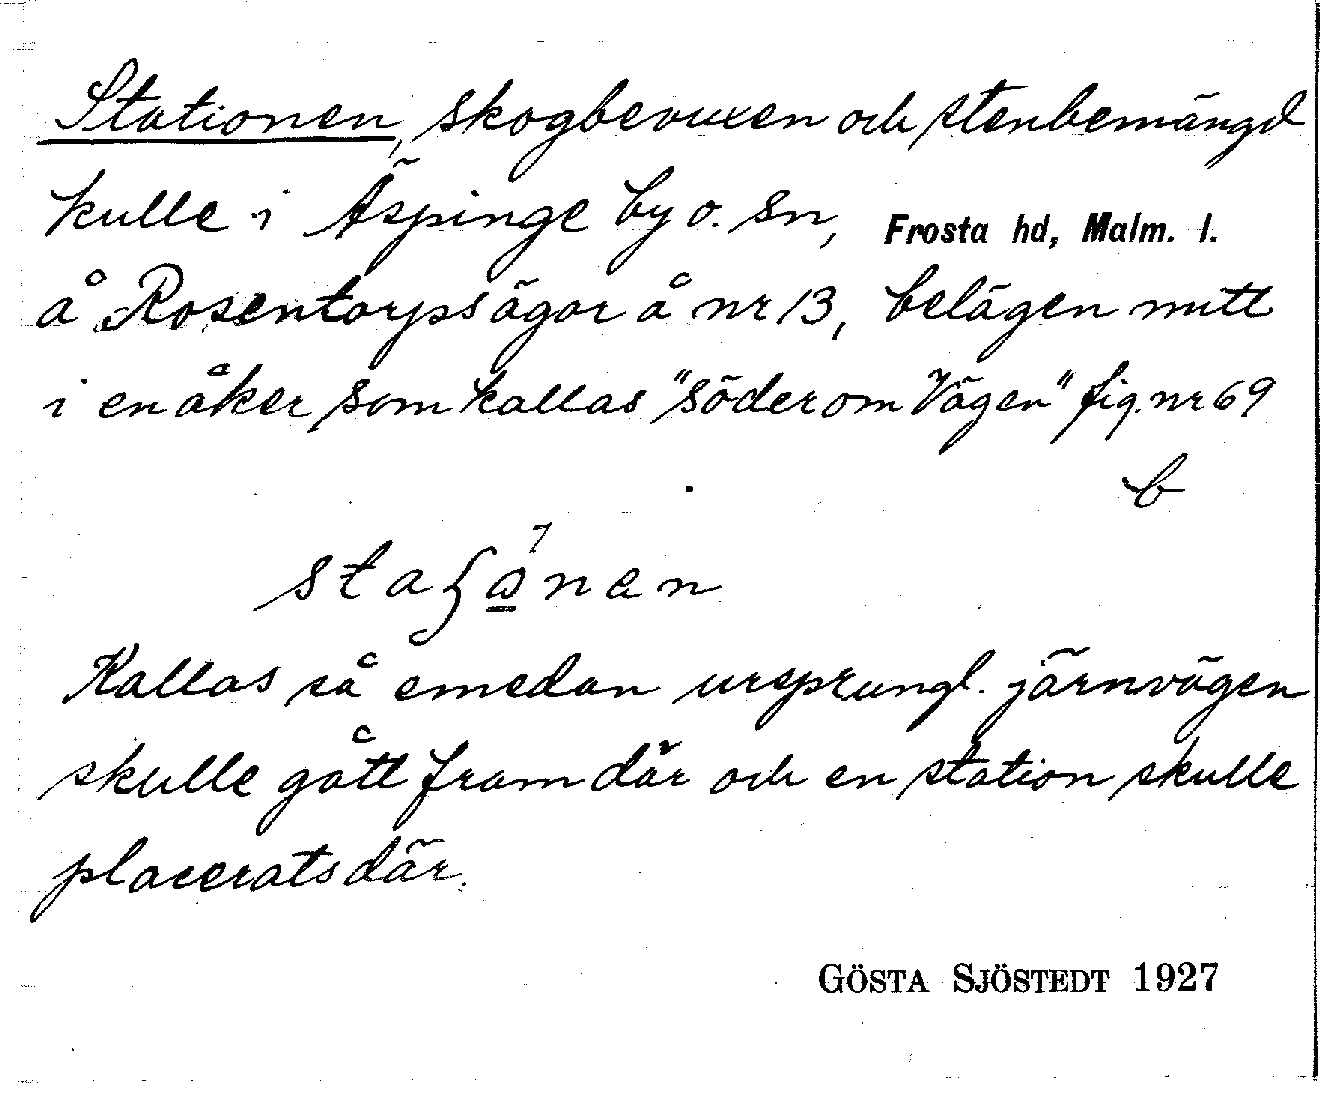 Stationen, skogbevuxen och stenbemängd
kulle i Äspinge by o. sn, Frosta hd, Malm. l.
å Rosentorps ägor å nr 13, belägen mitt
i en åker som kallas "söder om Vägen" fig. nr 69
b
staʃo̲nen
Kallas så emedan ursprungl. järnvägen
skulle gått fram där och en station skulle
placerats där.
GÖSTA SJÖSTEDT 1927